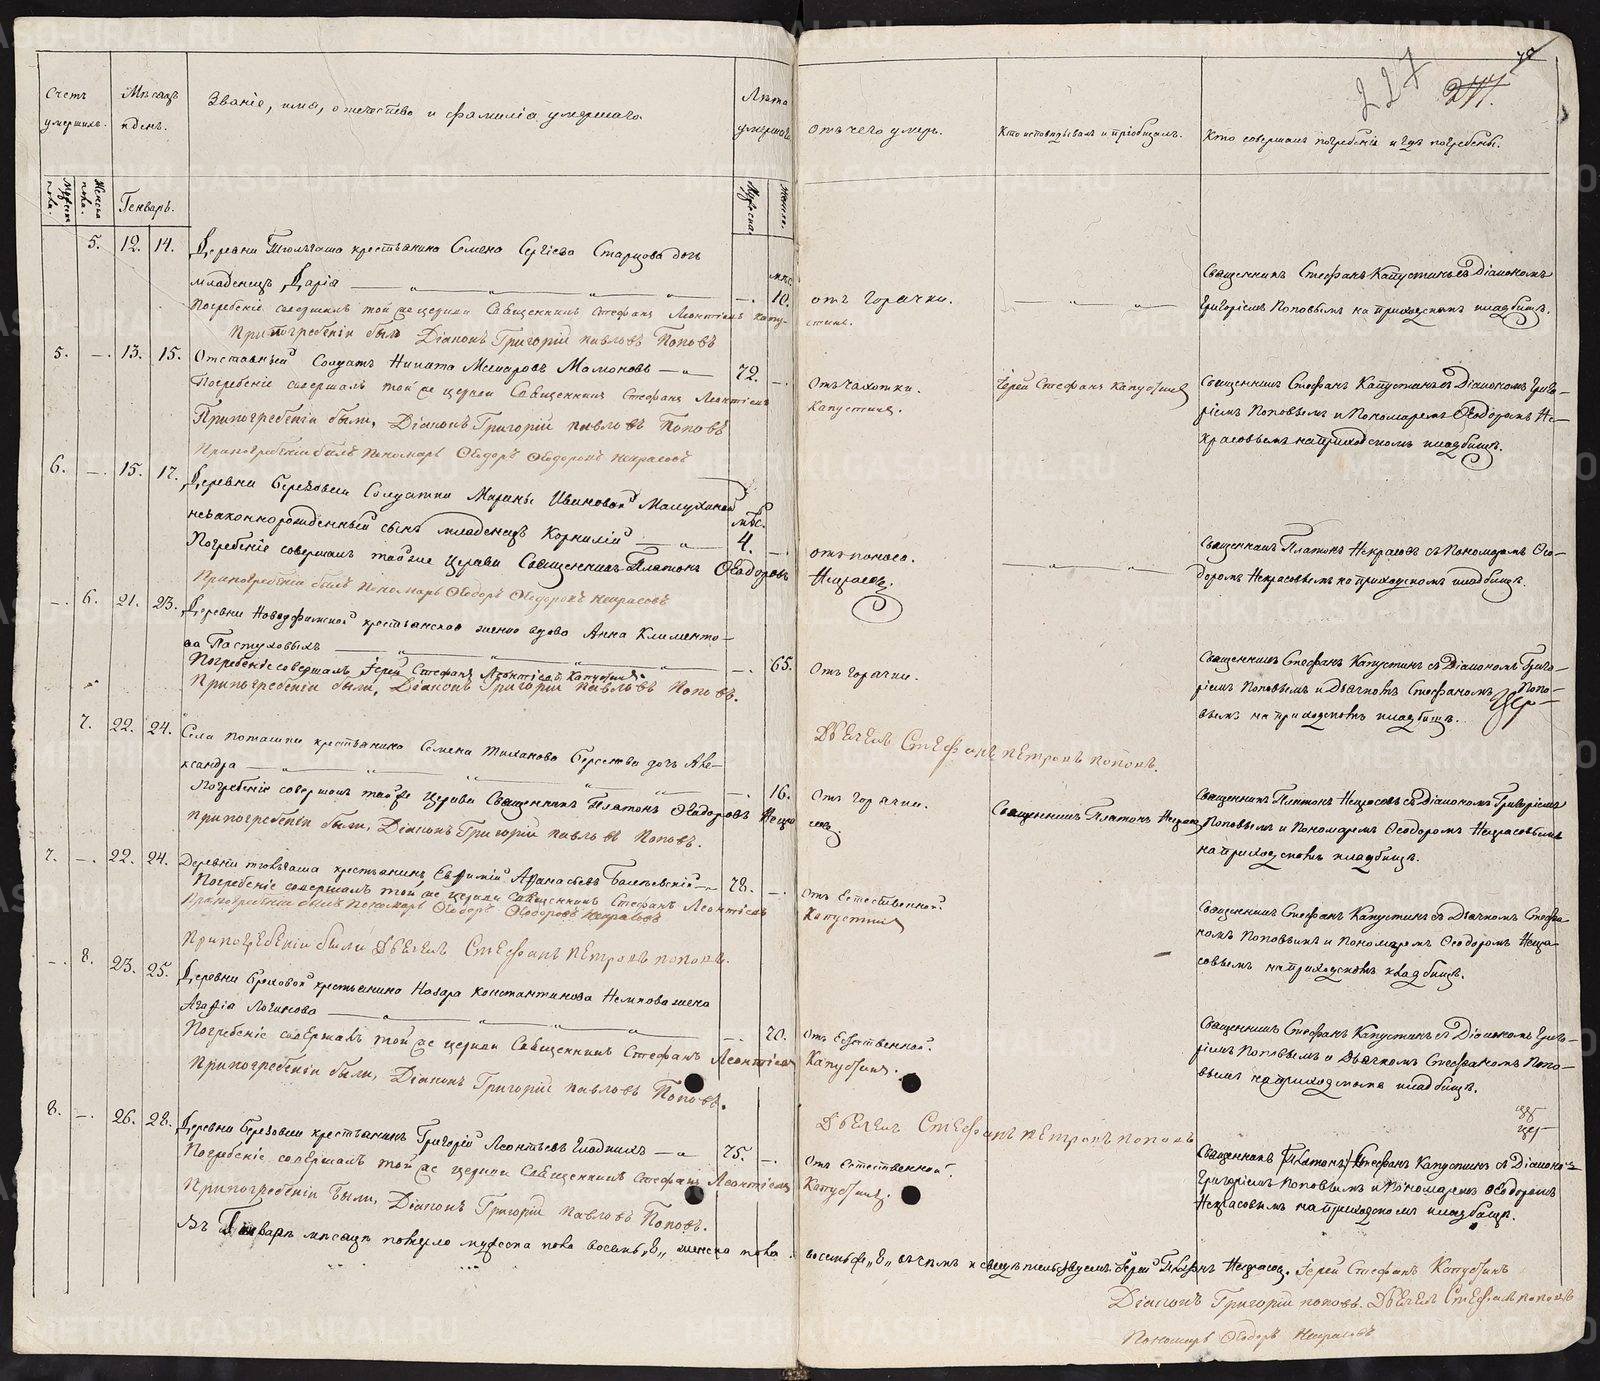 227
Счетъ умершихъ.
Мѣсяцъ и день.
Званіе, имя, отечество и фамилія умершаго
Лѣта умершаго
Отъ чего умеръ.
Кто исповѣдывалъ и пріобщалъ.
Кто совершалъ погребеніе и гдѣ погребены.
Мужска пола.
Женска пола.
Генварь.
Мужска
Женска
5. 12. 14. Деревни крестьянина Семена Сергіева Старцова дочь
младенецъ Дарія — 10. отъ горячки.
Священникъ Стефанъ Капустинъ съ Діакономъ
Григоріемъ Поповымъ на приходскомъ кладбищѣ.
Погребеніе совершалъ той же церкви Священникъ Стефанъ Леонтіевъ Капу-
стинъ.
При погребеніи былъ Діаконъ Григорій Павловъ Поповъ
5. — 13. 15. Отставный Солдатъ Никита Мамоновъ — 72. — Отъ чахотки.
Іерей Стефанъ Капустинъ
Священникъ Стефанъ Капустинъ съ Діакономъ Григо-
ріемъ Поповымъ и Пономаремъ Ѳеодоромъ Не-
красовымъ на приходскомъ кладбищѣ.
Погребеніе совершалъ той же церкви Священникъ Стефанъ Леонтіевъ
Капустинъ.
При погребеніи были, Діаконъ Григорій Павловъ Поповъ
При погребеніи былъ Пономарь Ѳеодоръ Ѳеодоровъ Некрасовъ
6. — 15. 17. Деревни Березовки Солдатки Марины Ивановой
незаконнорожденный сынъ младенецъ Корнилій — мѣс. 4. — отъ поноса.
Священникъ Платонъ Некрасовъ съ Пономаремъ Ѳео-
доромъ Некрасовымъ на приходскомъ кладбищѣ.
Погребеніе совершалъ тойже церкви Священникъ Платонъ Ѳеодоровъ
Некрасовъ.
При погребеніи былъ Пономарь Ѳеодоръ Ѳеодоровъ Некрасовъ
— 6. 21. 23. Деревни крестьянская жена вдова Анна Климента-
ва Пастуховыхъ — 65. Отъ горячки.
Священникъ Стефанъ Капустинъ съ Діакономъ Григо-
ріемъ Поповымъ и Дьячкомъ Стефаномъ Попо-
вымъ на приходскомъ кладбищѣ.
Погребеніе совершалъ Іерей Стефанъ Леонтіевъ Капустинъ.
При погребеніи были, Діаконъ Григорій Павловъ Поповъ.
Дьячекъ Стефанъ Петровъ Поповъ.
7. 22. 24. Села Поташки крестьянина Семена Берсенева дочь Але-
ксандра — 16. Отъ горячки.
Священникъ Платонъ Некрасовъ
Священникъ Платонъ Некрасовъ съ Діакономъ Григоріемъ
Поповымъ и Пономаремъ Ѳеодоромъ Некрасовымъ
на приходскомъ кладбищѣ.
Погребеніе совершалъ тойже церкви Священникъ Платонъ Ѳеодоровъ Некра
совъ.
При погребеніи были, Діаконъ Григорій Павловъ Поповъ.
7. — 22. 24. Деревни крестьянинъ Евфимій Аѳанасьевъ — 78. — Отъ Естественной.
Священникъ Стефанъ Капустинъ съ Дьячкомъ Стефа-
номъ Поповымъ и Пономаремъ Ѳеодоромъ Некра-
совымъ на приходскомъ кладбищѣ.
Погребеніе совершалъ той же церкви Священникъ Стефанъ Леонтіевъ
Капустинъ
При погребеніи былъ Пономарь Ѳеодоръ Ѳеодоровъ Некрасовъ
При погребеніи были Дьячекъ Стефанъ Петровъ Поповъ.
— 8. 23. 25. Деревни крестьянина Назара Константинова жена
Агафія Логинова — 70. Отъ Естественной.
Священникъ Стефанъ Капустинъ съ Діакономъ Григо-
ріемъ Поповымъ и Дьячкомъ Стефаномъ Попо-
вымъ на приходскомъ кладбищѣ.
Погребеніе совершалъ той же церкви Священникъ Стефанъ Леонтіевъ
Капустинъ.
При погребеніи были, Діаконъ Григорій Павловъ Поповъ.
Дьячекъ Стефанъ Петровъ Поповъ
8. — 26. 28. Деревни Березовки крестьянинъ Григорій Леонтьевъ — 75. — Отъ естественной.
Священникъ Стефанъ Капустинъ съ Діакономъ
Григоріемъ Поповымъ и Пономаремъ Ѳеодоромъ
Некрасовымъ на приходскомъ кладбищѣ.
Погребеніе совершалъ той же церкви Священникъ Стефанъ Леонтіевъ
Капустинъ.
При погребеніи были, Діаконъ Григорій Павловъ Поповъ.
Въ Генварѣ мѣсяцѣ померло мужеска пола восемь „8„ женска пола восемьже „8„ въ чемъ и свидѣтельствуемъ Іерей Платонъ Некрасовъ. Іерей Стефанъ Капустинъ
Діаконъ Григорій Поповъ. Дьячекъ Стефанъ Поповъ
Пономарь Ѳеодоръ Некрасовъ